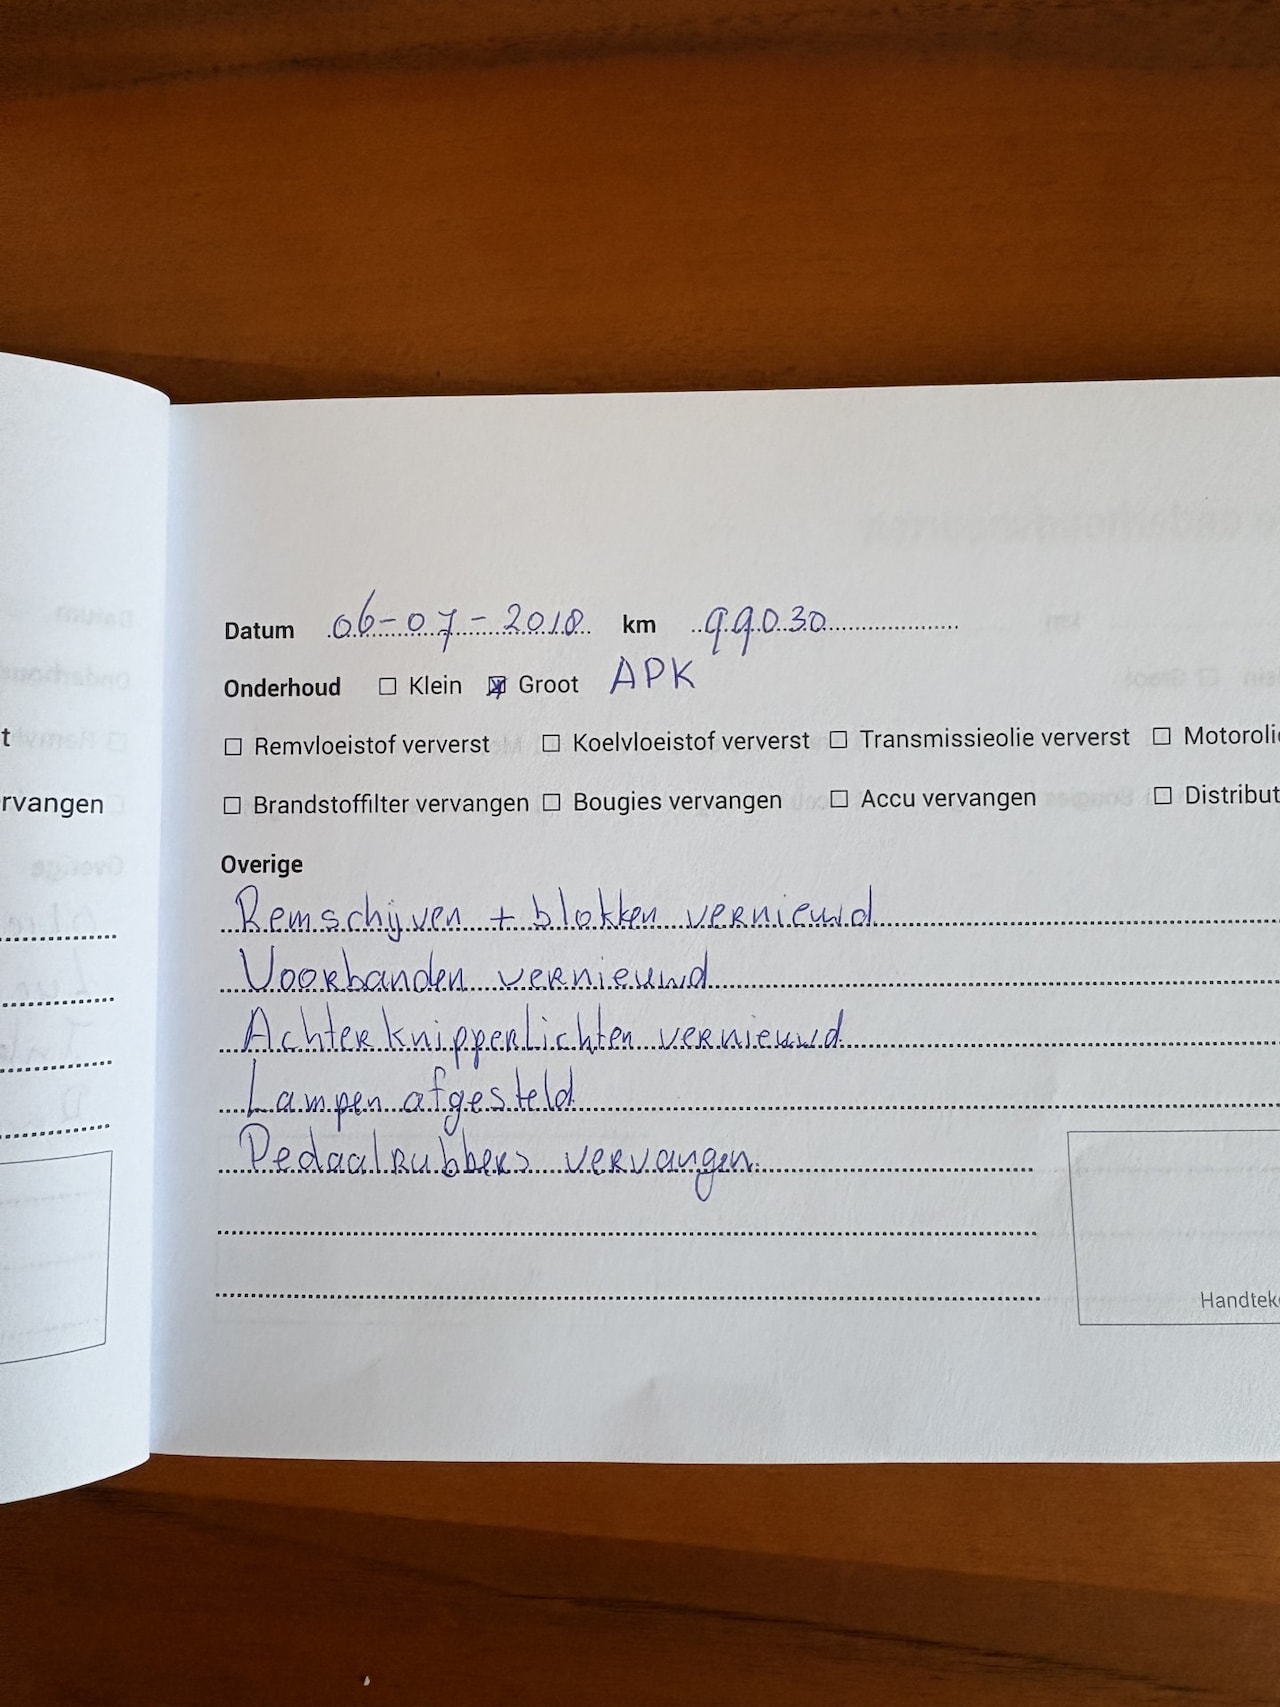 Datum 06-07-2018 km 99030
Onderhoud ☐ Klein ☒ Groot APK
☐ Remvloeistof ververst ☐ Koelvloeistof ververst ☐ Transmissieolie ververst ☐ Motoroli
☐ Brandstoffilter vervangen ☐ Bougies vervangen ☐ Accu vervangen ☐ Distribut
Overige
Remschijven + blokken vernieuwd
Voorbanden vernieuwd
Achterknipperlichten vernieuwd
Lampen afgesteld
Pedaalrubbers vervangen.
Handtek
t
rvangen